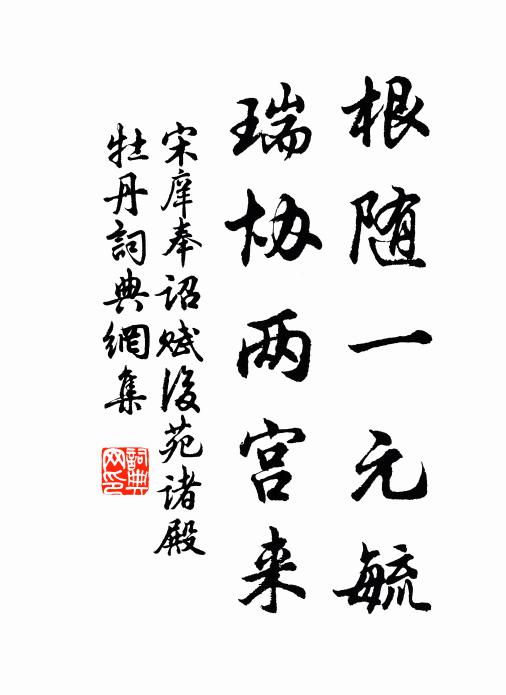 根随一元毓
瑞协两宫来
宋庠奉詔赋後苑诸殿
牡丹詞典網集
詞典网印